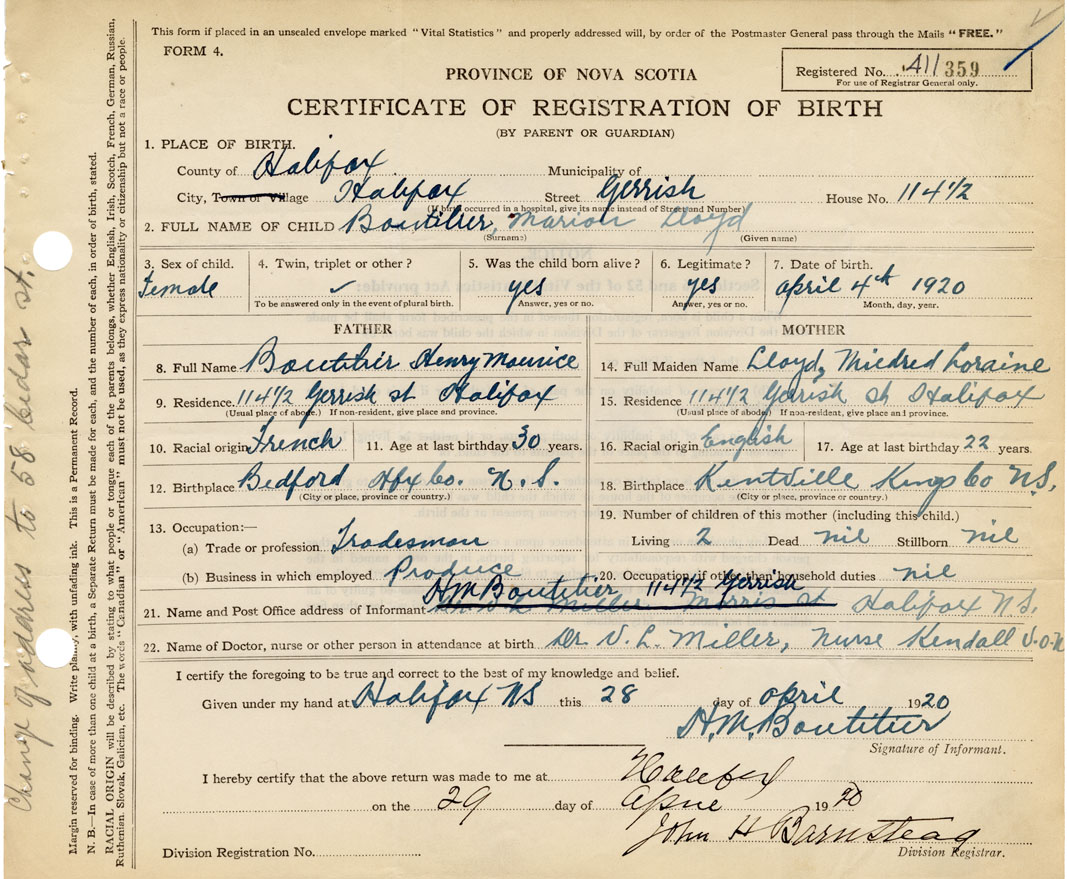 This form if placed in an unsealed envelope marked "Vital Statistics" and properly addressed will, by order of the Postmaster General pass through the Mails "FREE."
FORM 4.
Registered No. 411359
For use of Registrar General only.
PROVINCE OF NOVA SCOTIA
CERTIFICATE OF REGISTRATION OF BIRTH
(BY PARENT OR GUARDIAN)
1. PLACE OF BIRTH.
County of Halifax Municipality of
City, Town or Village Halifax Street Gerrish House No. 114½
(If birth occurred in a hospital, give its name instead of Street and Number)
2. FULL NAME OF CHILD Boutilier, Marion Lloyd
(Surname) (Given name)
3. Sex of child. 4. Twin, triplet or other? 5. Was the child born alive? 6. Legitimate? 7. Date of birth.
Female yes yes April 4th 1920
To be answered only in the event of plural birth. Answer, yes or no. Answer, yes or no. Month, day, year.
FATHER MOTHER
8. Full Name Boutilier Henry Maurice 14. Full Maiden Name Lloyd, Mildred Loraine
9. Residence. 114½ Gerrish st Halifax 15. Residence 114½ Gerrish st Halifax
(Usual place of above.) If non-resident, give place and province. (Usual place of abode) If non-resident, give place and province.
10. Racial origin French 11. Age at last birthday 30 years. 16. Racial origin English 17. Age at last birthday 22 years.
12. Birthplace Bedford Hfx Co. N.S. 18. Birthplace Kentville Kings Co N.S.
(City or place, province or country.) (City or place, province or country.)
13. Occupation:— 19. Number of children of this mother (including this child.)
(a) Trade or profession Tradesman Living 2 Dead nil Stillborn nil
(b) Business in which employed Produce 20. Occupation if other than household duties nil
H.M. Boutilier 114½ Gerrish
21. Name and Post Office address of Informant Miller Morris st Halifax N.S.
22. Name of Doctor, nurse or other person in attendance at birth Dr. V. L. Miller, Nurse Kendall V.O.N
I certify the foregoing to be true and correct to the best of my knowledge and belief.
Given under my hand at Halifax NS this 28 day of April 1920
H.M. Boutilier
Signature of Informant.
I hereby certify that the above return was made to me at Halifax
on the 29 day of April 1920
John H Barnstead
Division Registrar.
Division Registration No.
Change of address to 58 Cedar st.
Margin reserved for binding. Write plainly, with unfading ink. This is a Permanent Record.
N. B.—In case of more than one child at a birth, a Separate Return must be made for each, and the number of each, in order of birth, stated.
RACIAL ORIGIN will be described by stating to what people or tongue each of the parents belongs, whether English, Irish, Scotch, French, German, Russian,
Ruthenian, Slovak, Galician, etc. The words "Canadian" or "American" must not be used, as they express nationality or citizenship but not a race or people.